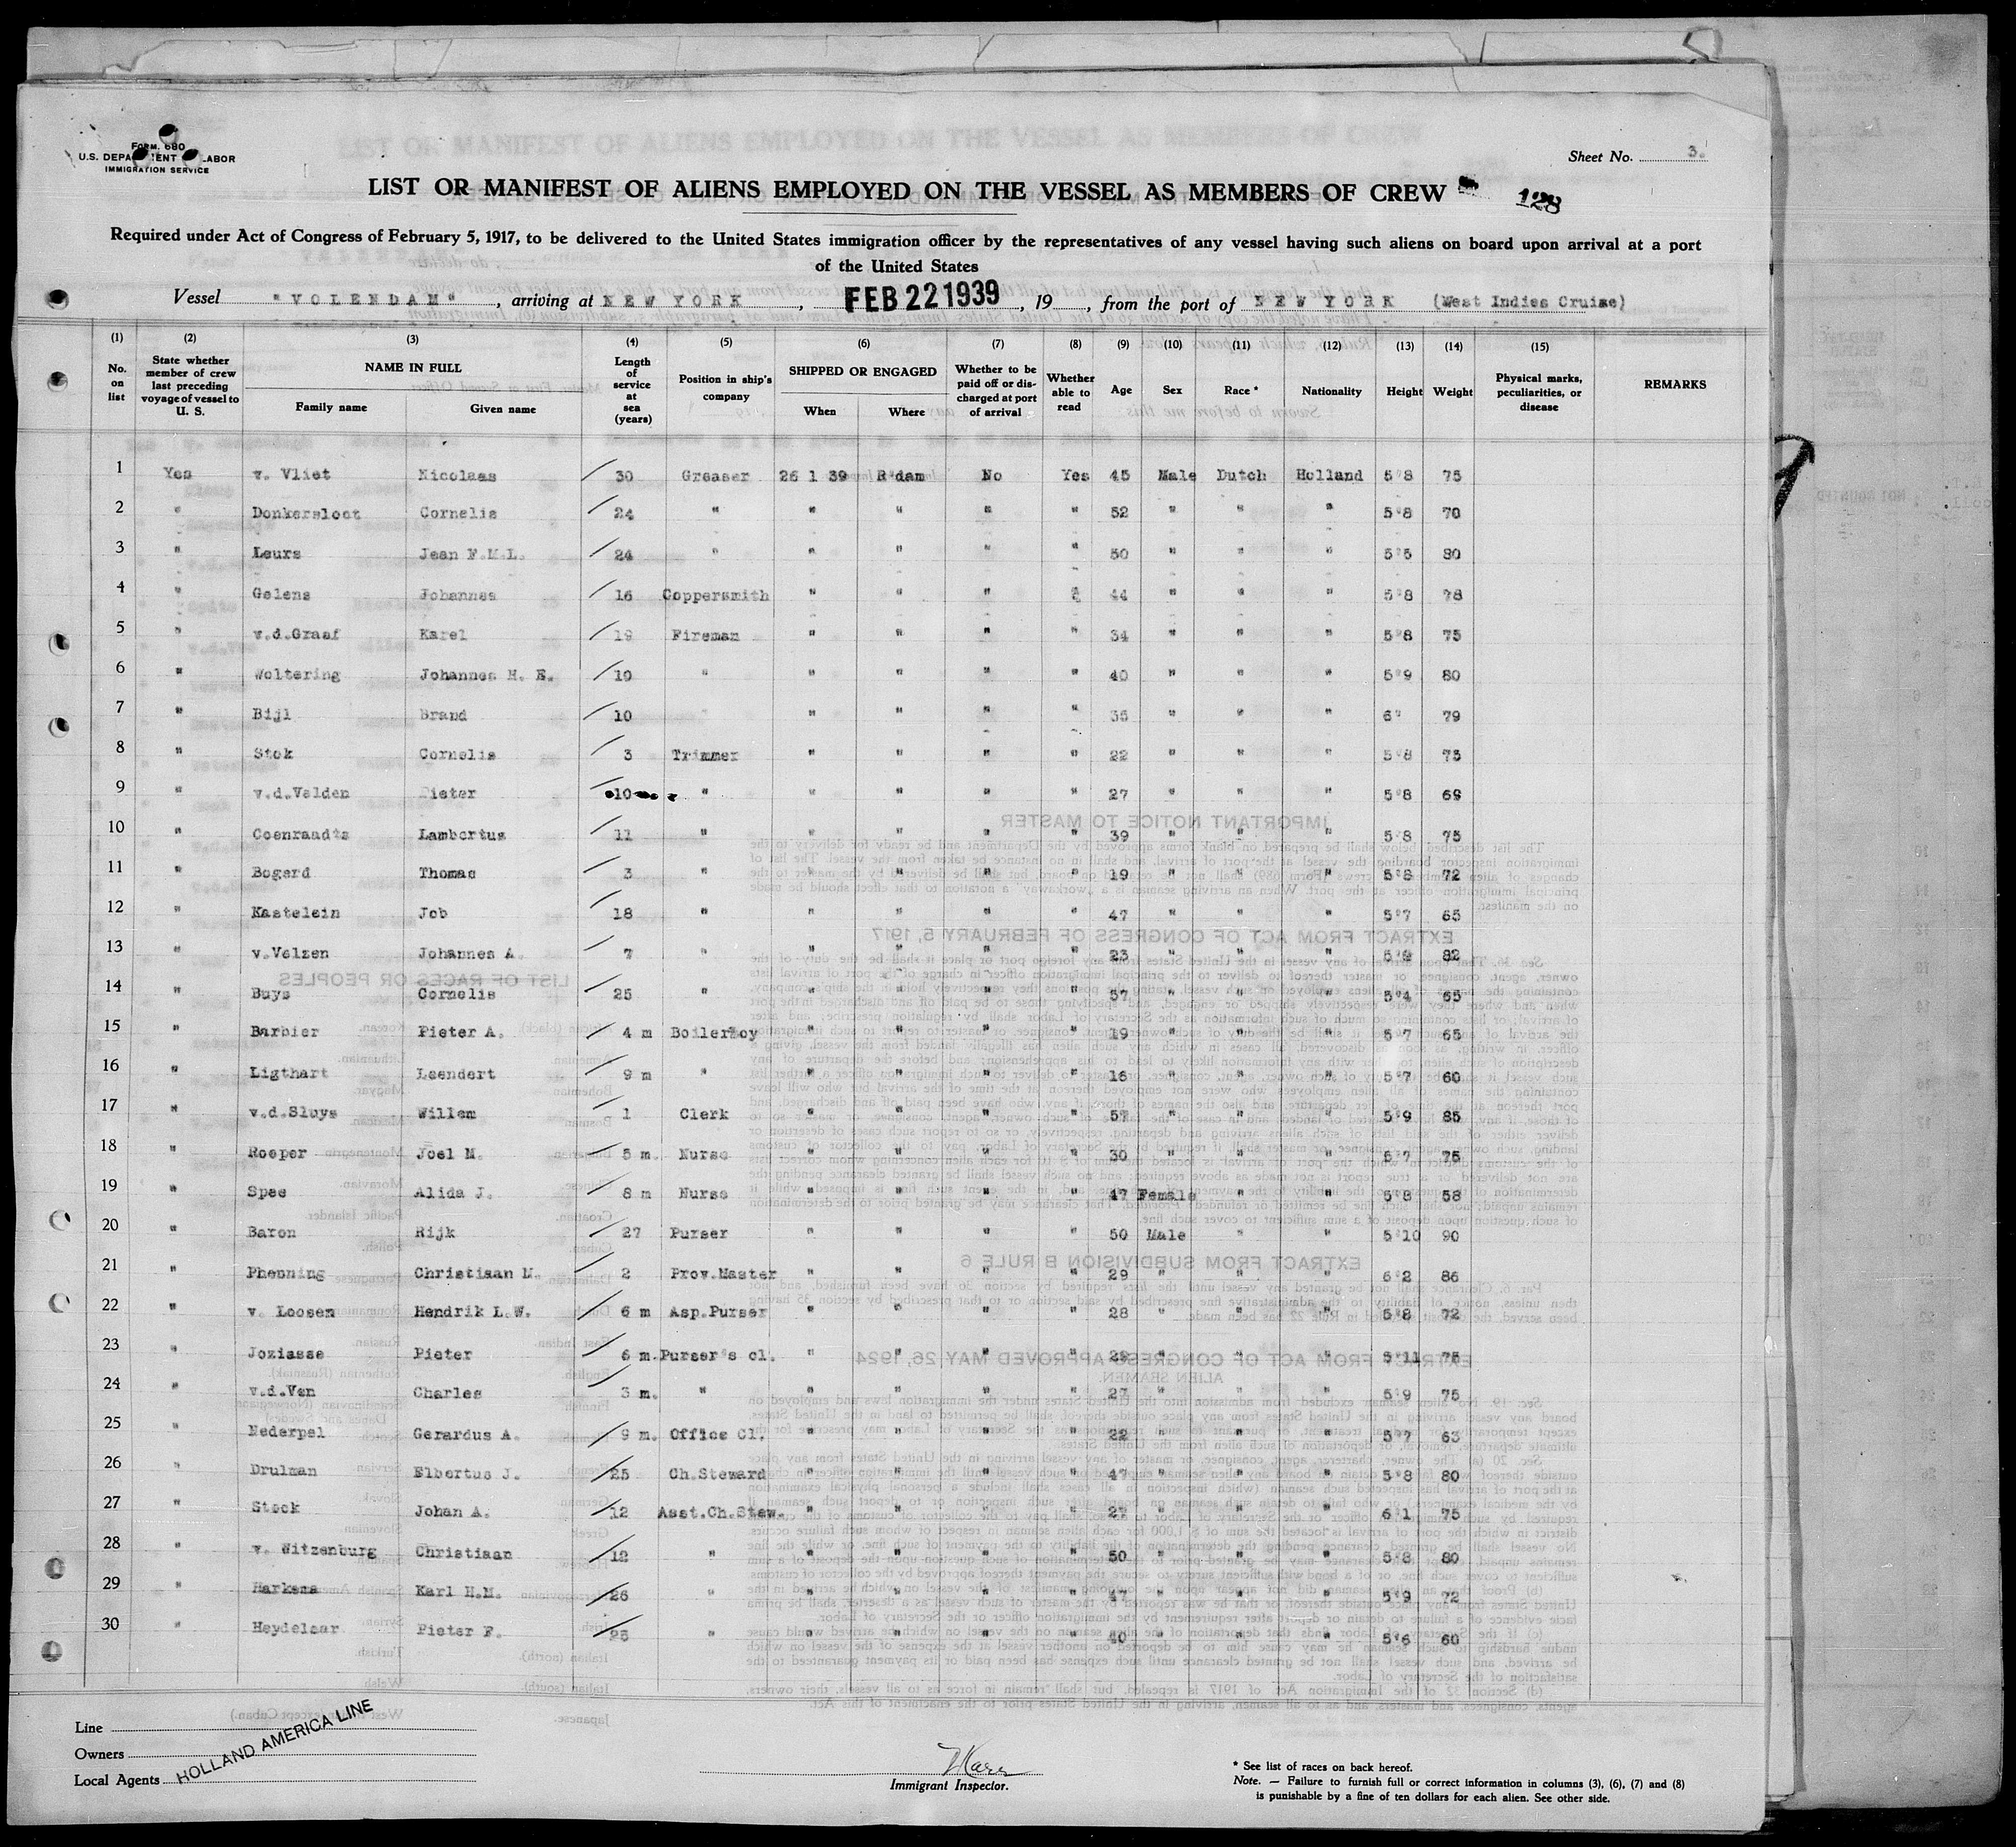 FORM 680
U.S. DEPARTMENT LABOR
IMMIGRATION SERVICE
Sheet No. 3.
LIST OR MANIFEST OF ALIENS EMPLOYED ON THE VESSEL AS MEMBERS OF CREW
128
Required under Act of Congress of February 5, 1917, to be delivered to the United States immigration officer by the representatives of any vessel having such aliens on board upon arrival at a port
of the United States
Vessel "VOLENDAM", arriving at NEW YORK, FEB 22 1939, 19, from the port of NEW YORK (West Indies Cruise)
(1) (2) (3) (4) (5) (6) (7) (8) (9) (10) (11) (12) (13) (14) (15)
No. on list | State whether member of crew last preceding voyage of vessel to U. S. | NAME IN FULL Family name Given name | Length of service at sea (years) | Position in ship's company | SHIPPED OR ENGAGED When Where | Whether to be paid off or discharged at port of arrival | Whether able to read | Age | Sex | Race * | Nationality | Height | Weight | Physical marks, peculiarities, or disease | REMARKS
1 Yes v. Vliet Nicolaas 30 Greaser 26 1 39 R'dam No Yes 45 Male Dutch Holland 5'8 75
2 " Donkersloot Cornelis 24 " " " " " 52 " " " 5'8 70
3 " Leurs Jean F.M.L. 24 " " " " " 50 " " " 5'5 80
4 " Gelens Johannes 16 Coppersmith " " " " 44 " " " 5'8 78
5 " v.d.Graaf Karel 19 Fireman " " " " 34 " " " 5'8 75
6 " Woltering Johannes H. E. 10 " " " " " 40 " " " 5'9 80
7 " Bijl Brand 10 " " " " " 35 " " " 6' 79
8 " Stok Cornelis 3 Trimmer " " " " 22 " " " 5'8 75
9 " v.d.Velden Pieter 10 " " " " " 27 " " " 5'8 69
10 " Coenraadts Lambertus 11 " " " " " 39 " " " 5'8 75
11 " Bogerd Thomas 3 " " " " " 19 " " " 5'8 72
12 " Kastelein Job 18 " " " " " 47 " " " 5'7 65
13 " v.Velzen Johannes A. 7 " " " " " 23 " " " 5'9 82
14 " Buys Cornelis 25 " " " " " 57 " " " 5'4 65
15 " Barbier Pieter A. 4 m Boilerboy " " " " 19 " " " 5'7 65
16 " Ligthart Leendert 9 m " " " " " 16 " " " 5'7 60
17 " v.d.Sluys Willem 1 Clerk " " " " 57 " " " 5'9 85
18 " Roeper Joel M. 5 m. Nurse " " " " 30 " " " 5'7 75
19 " Spee Alida J. 8 m Nurse " " " " 47 Female " " 5'8 58
20 " Baron Rijk 27 Purser " " " " 50 Male " " 5'10 90
21 " Phenning Christiaan M. 2 Prov.Master " " " " 29 " " " 6'2 86
22 " v. Loosen Hendrik L.W. 6 m Asp.Purser " " " " 28 " " " 5'8 72
23 " Joziasse Pieter 6 m. Purser's cl. " " " " 29 " " " 5'11 75
24 " v.d.Ven Charles 3 m. " " " " " 27 " " " 5'9 75
25 " Nederpel Gerardus A. 9 m. Office Cl. " " " " 22 " " " 5'7 63
26 " Drulman Elbertus J. 25 Ch.Steward " " " " 47 " " " 5'8 80
27 " Steck Johan A. 12 Asst.Ch.Stew. " " " " " " " 6'1 75
28 " v. Witzenburg Christiaan 12 " " " " " 50 " " " 5'8 80
29 " Harkema Karl H.M. 26 " " " " " 47 " " " 5'9 72
30 " Heydelaar Pieter F. 25 " " " " " 40 " " " 5'6 60
Line
Owners
Local Agents
HOLLAND AMERICA LINE
Immigrant Inspector.
* See list of races on back hereof.
Note. — Failure to furnish full or correct information in columns (3), (6), (7) and (8)
is punishable by a fine of ten dollars for each alien. See other side.